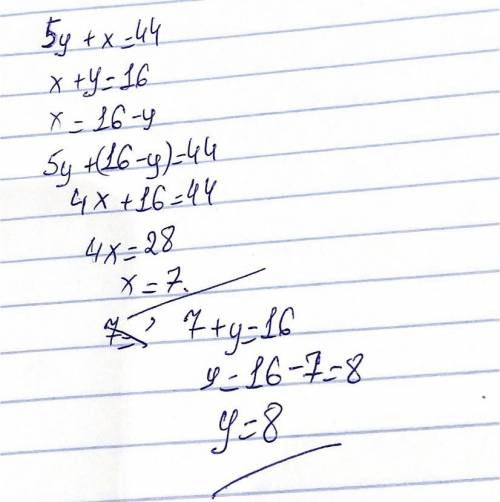 5y + x = 44
x + y = 16
x = 16 - y
5y + (16 - y) = 44
4x + 16 = 44
4x = 28
x = 7.
7 + y = 16
y = 16 - 7 = 8
y = 8